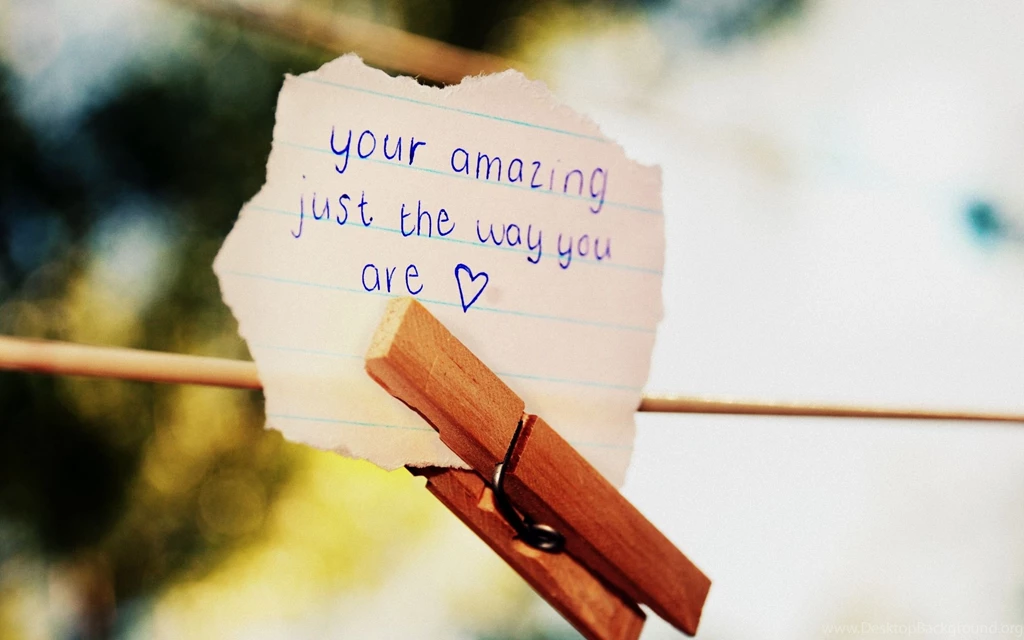 your amazing
just the way you
are ♡
www.DesktopBackground.org